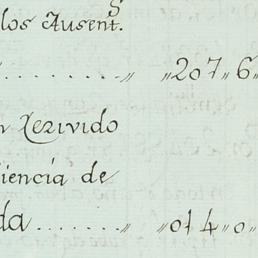 los Ausent.s
........,, ,,207,,6
n Xerivido
iencia de
da........,, ,,014,,0,,